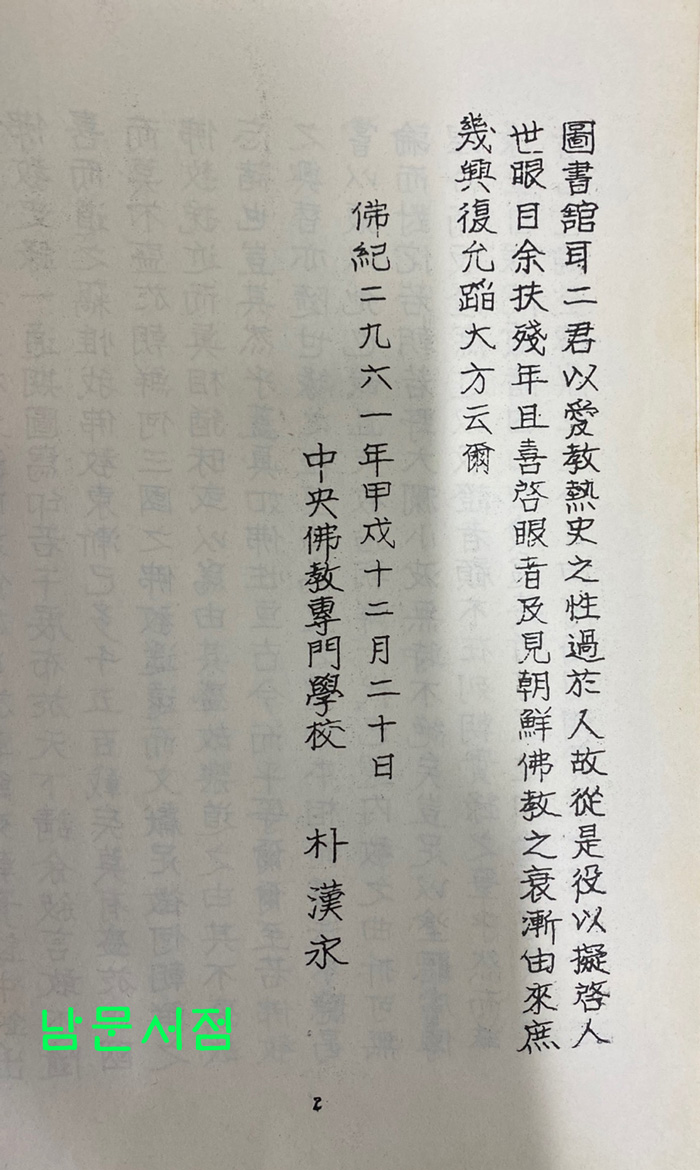 圖書舘耳二君以愛教熱史之性過於人故從是役以擬啓人
世眼目余扶殘年且喜啓眼者及見朝鮮佛教之衰漸由來庶
幾興復允蹈大方云爾
佛紀二九六一年甲戌十二月二十日
中央佛教專門學校 朴漢永
남문서점
2